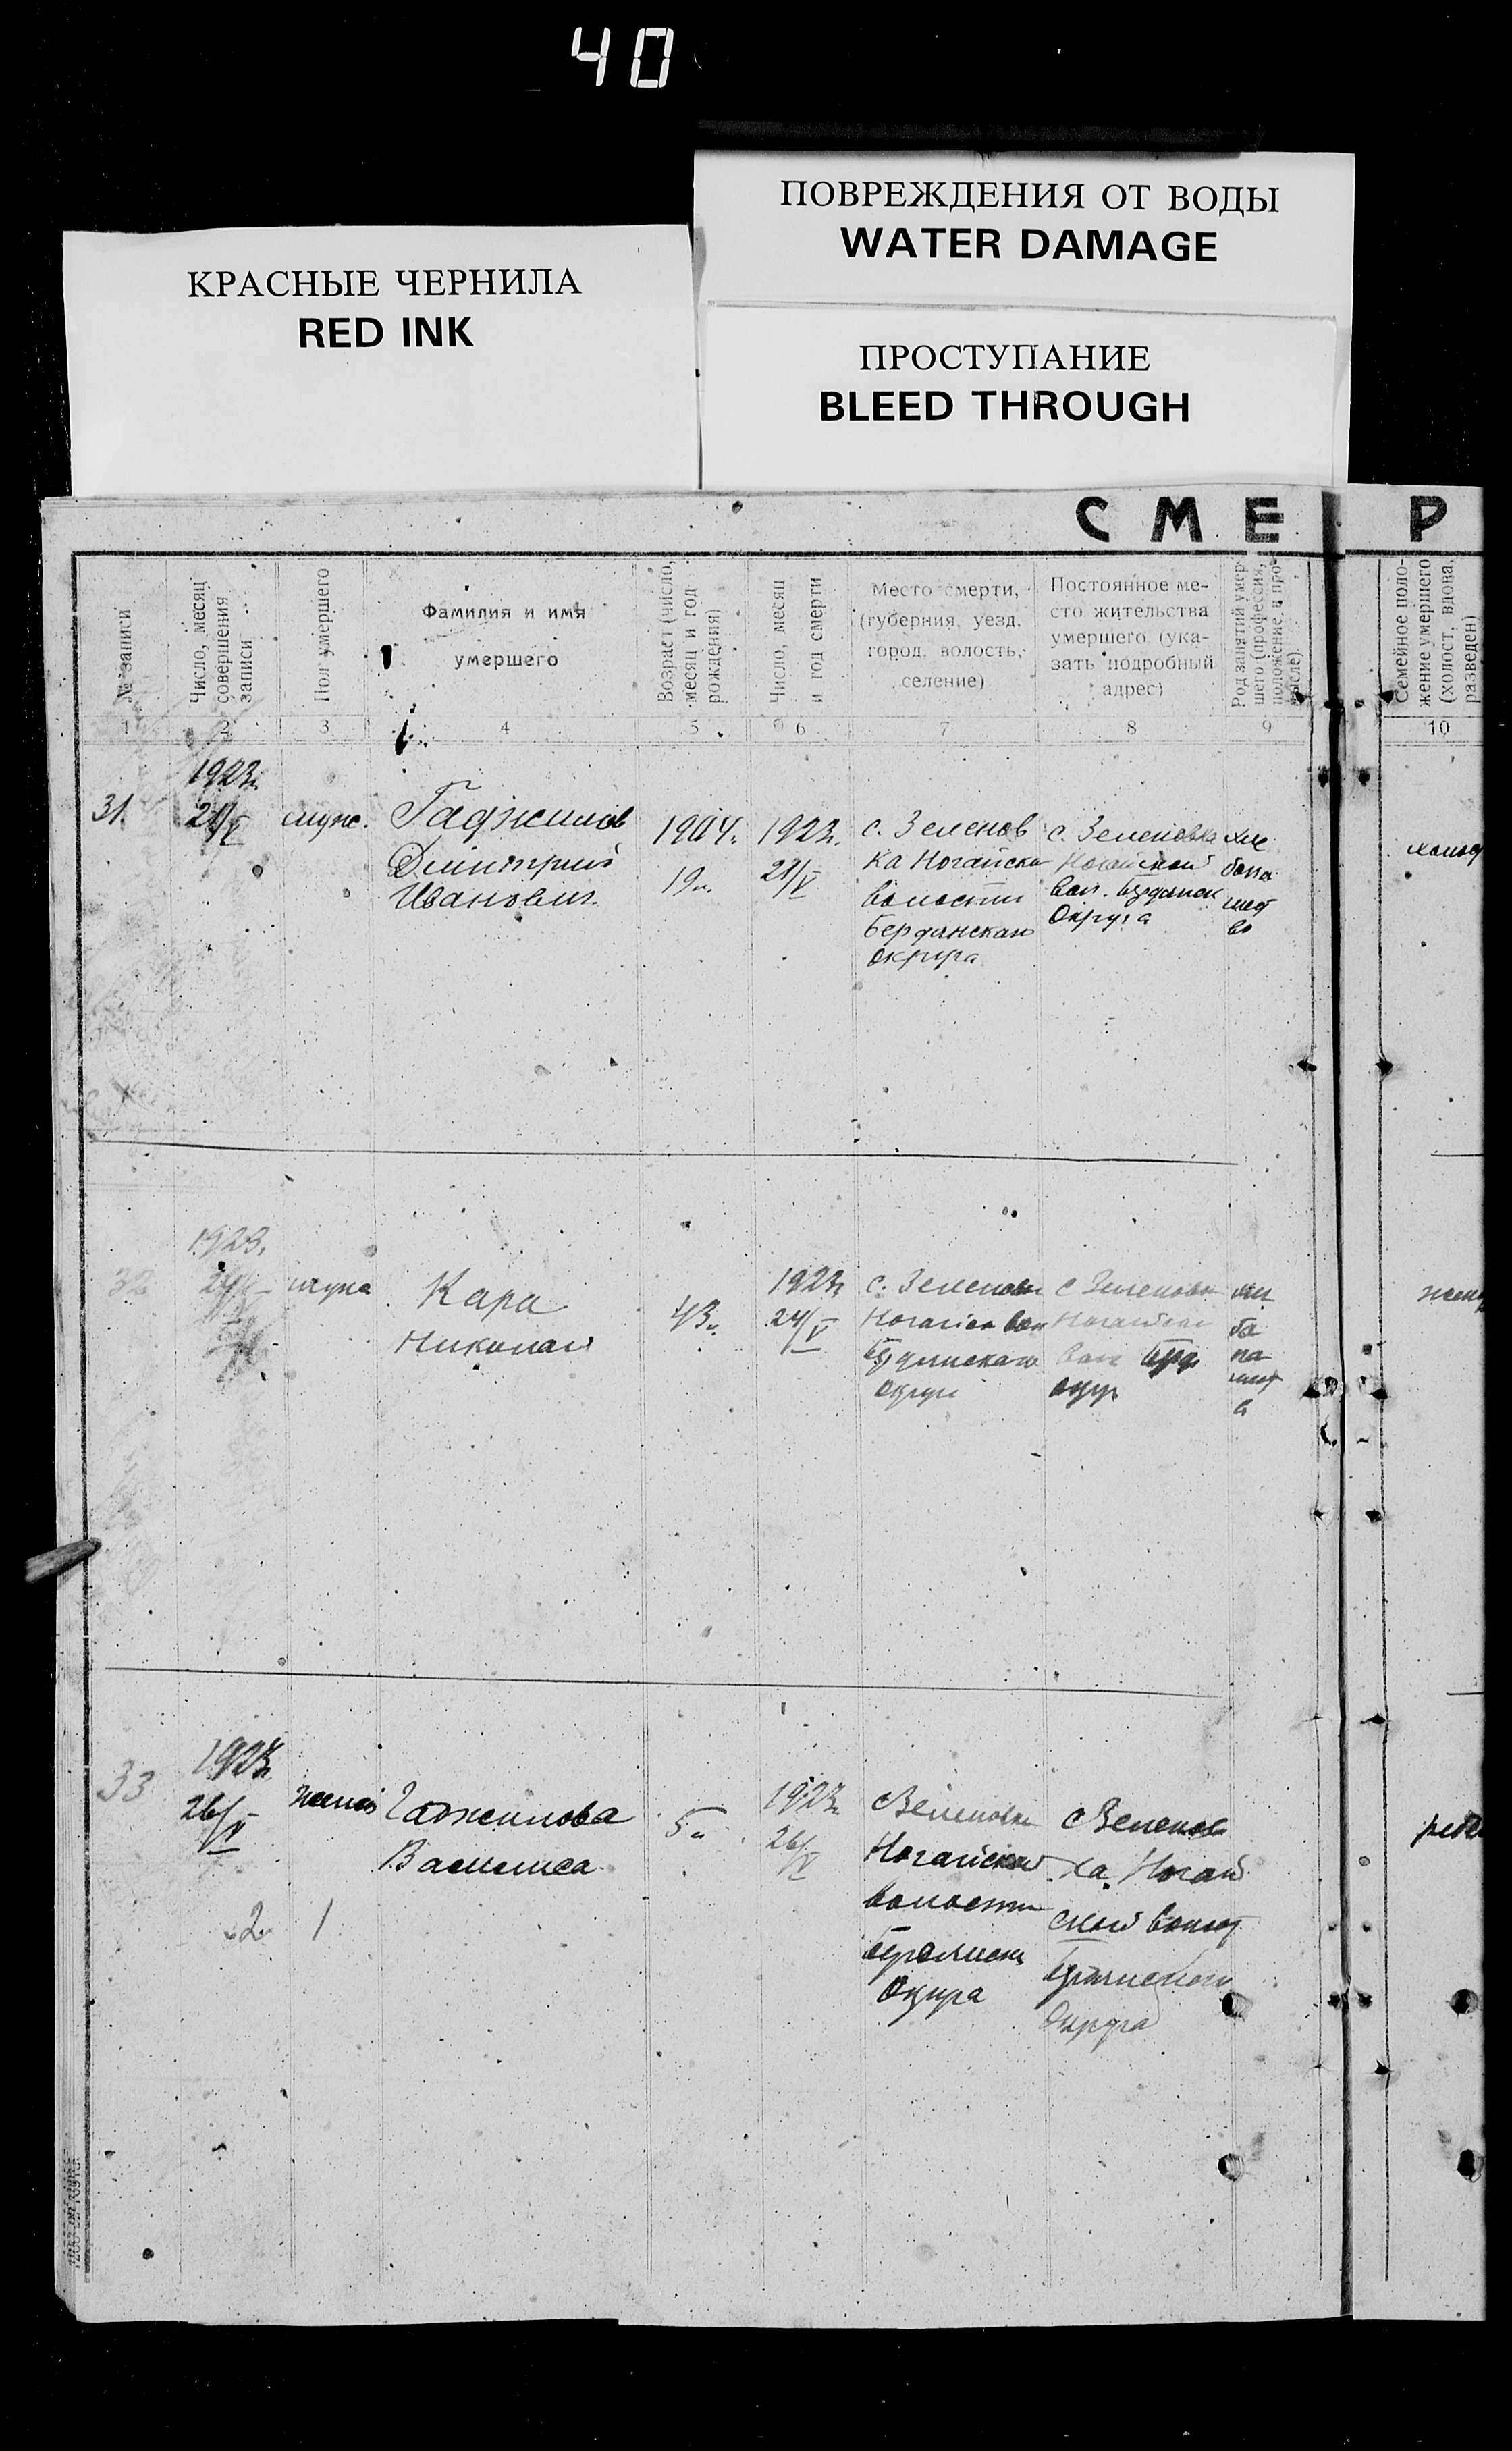 40
ПОВРЕЖДЕНИЯ ОТ ВОДЫ
WATER DAMAGE
КРАСНЫЕ ЧЕРНИЛА
RED INK
ПРОСТУПАНИЕ
BLEED THROUGH
СМЕ Р
№ записи
Число, месяц
совершения
записи
Пол умершего
Фамилия и имя
умершего
Возраст (число,
месяц и год
рождения)
Число, месяц
и год смерти
Место смерти,
(губерния, уезд,
город, волость,
селение)
Постоянное ме-
сто жительства
умершего (ука-
зать подробный
адрес)
Род занятий умер-
шего (профессия,
положение в про-
мысле)
Семейное поло-
жение умершего
(холост, вдова,
разведен)
1 2 3 4 5 6 7 8 9 10
31.
1923г.
21/V
муж.
Гаджилов
Дмитрий
Иванович
1904г.
19л.
1923г.
21/V
с. Зеленов
ка Ногайско
волости
Бердянскаго
округа
с. Зеленовка
Ногайской
вол. Бердянск
Округа
хле
бопа
шест
во
холост
32
1923.
24/V
мужс
Кара
Николай
43л.
1923г.
24/V
с. Зеленовк
Ногайск вол
Бердянскаго
округ
с Зеленовк
Ногайской
вол Берд
округ
бо
па
шест
в
33
1923г.
26/V
женс
Гаджилова
Василиса
5л.
1923г.
26/V
с Зеленовка
Ногайской
волости
Бердянск
Округа
с Зеленов
ка Ногай
ской волост
Бердянского
Округа
ребе
2 1